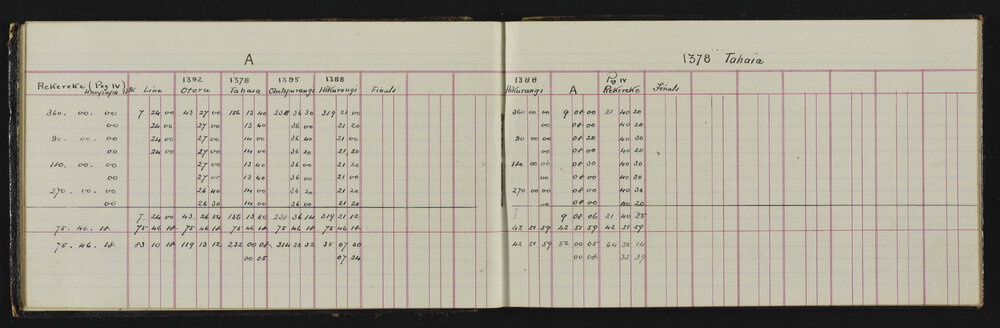 A
1392 1378 1395 1388
Rekereke (Peg IV) Line Otoru Tahaia Hikurangi Finals
360. 00. 00 7 24 00 43 27 00 156 13 40 238 36 30 319 21 00
00 24 00 27 00 13 40 36 00 21 00
90. 00. 00 24 00 27 00 14 00 36 40 21 20
00 24 00 27 00 14 00 36 20 21 20
180. 00. 00 27 00 13 40 36 00 21 20
00 27 00 13 40 36 00 21 20
270. 00. 00 26 40 14 00 36 20 21 20
00 26 30 14 00 36 00 21 20
7 24 00 43. 26 54 156 13 50 238 36 14 319 21 12
75. 46. 18 75 46 18 75 46 18 75 46 18 75 46 18 75 46 18
75. 46. 18 83 10 18 119 13 12 232 00 08 314 22 32 35 07 30
00 05 07 24
1378 Tahaia
1388 Peg IV
Hikurangi A Rekereke Finals
360 00 00 9 08 00 21 40 20
00 08 00 40 20
90 00 00 08 20 40 30
00 08 00 40 20
180 00 00 08 30 40 30
00 08 00 40 30
270 00 00 08 00 40 30
00 08 00 40 20
9 08 06 21 40 25
42 51 59 42 51 59 42 51 59
42 51 59 52 00 05 64 32 14
00 08 32 39